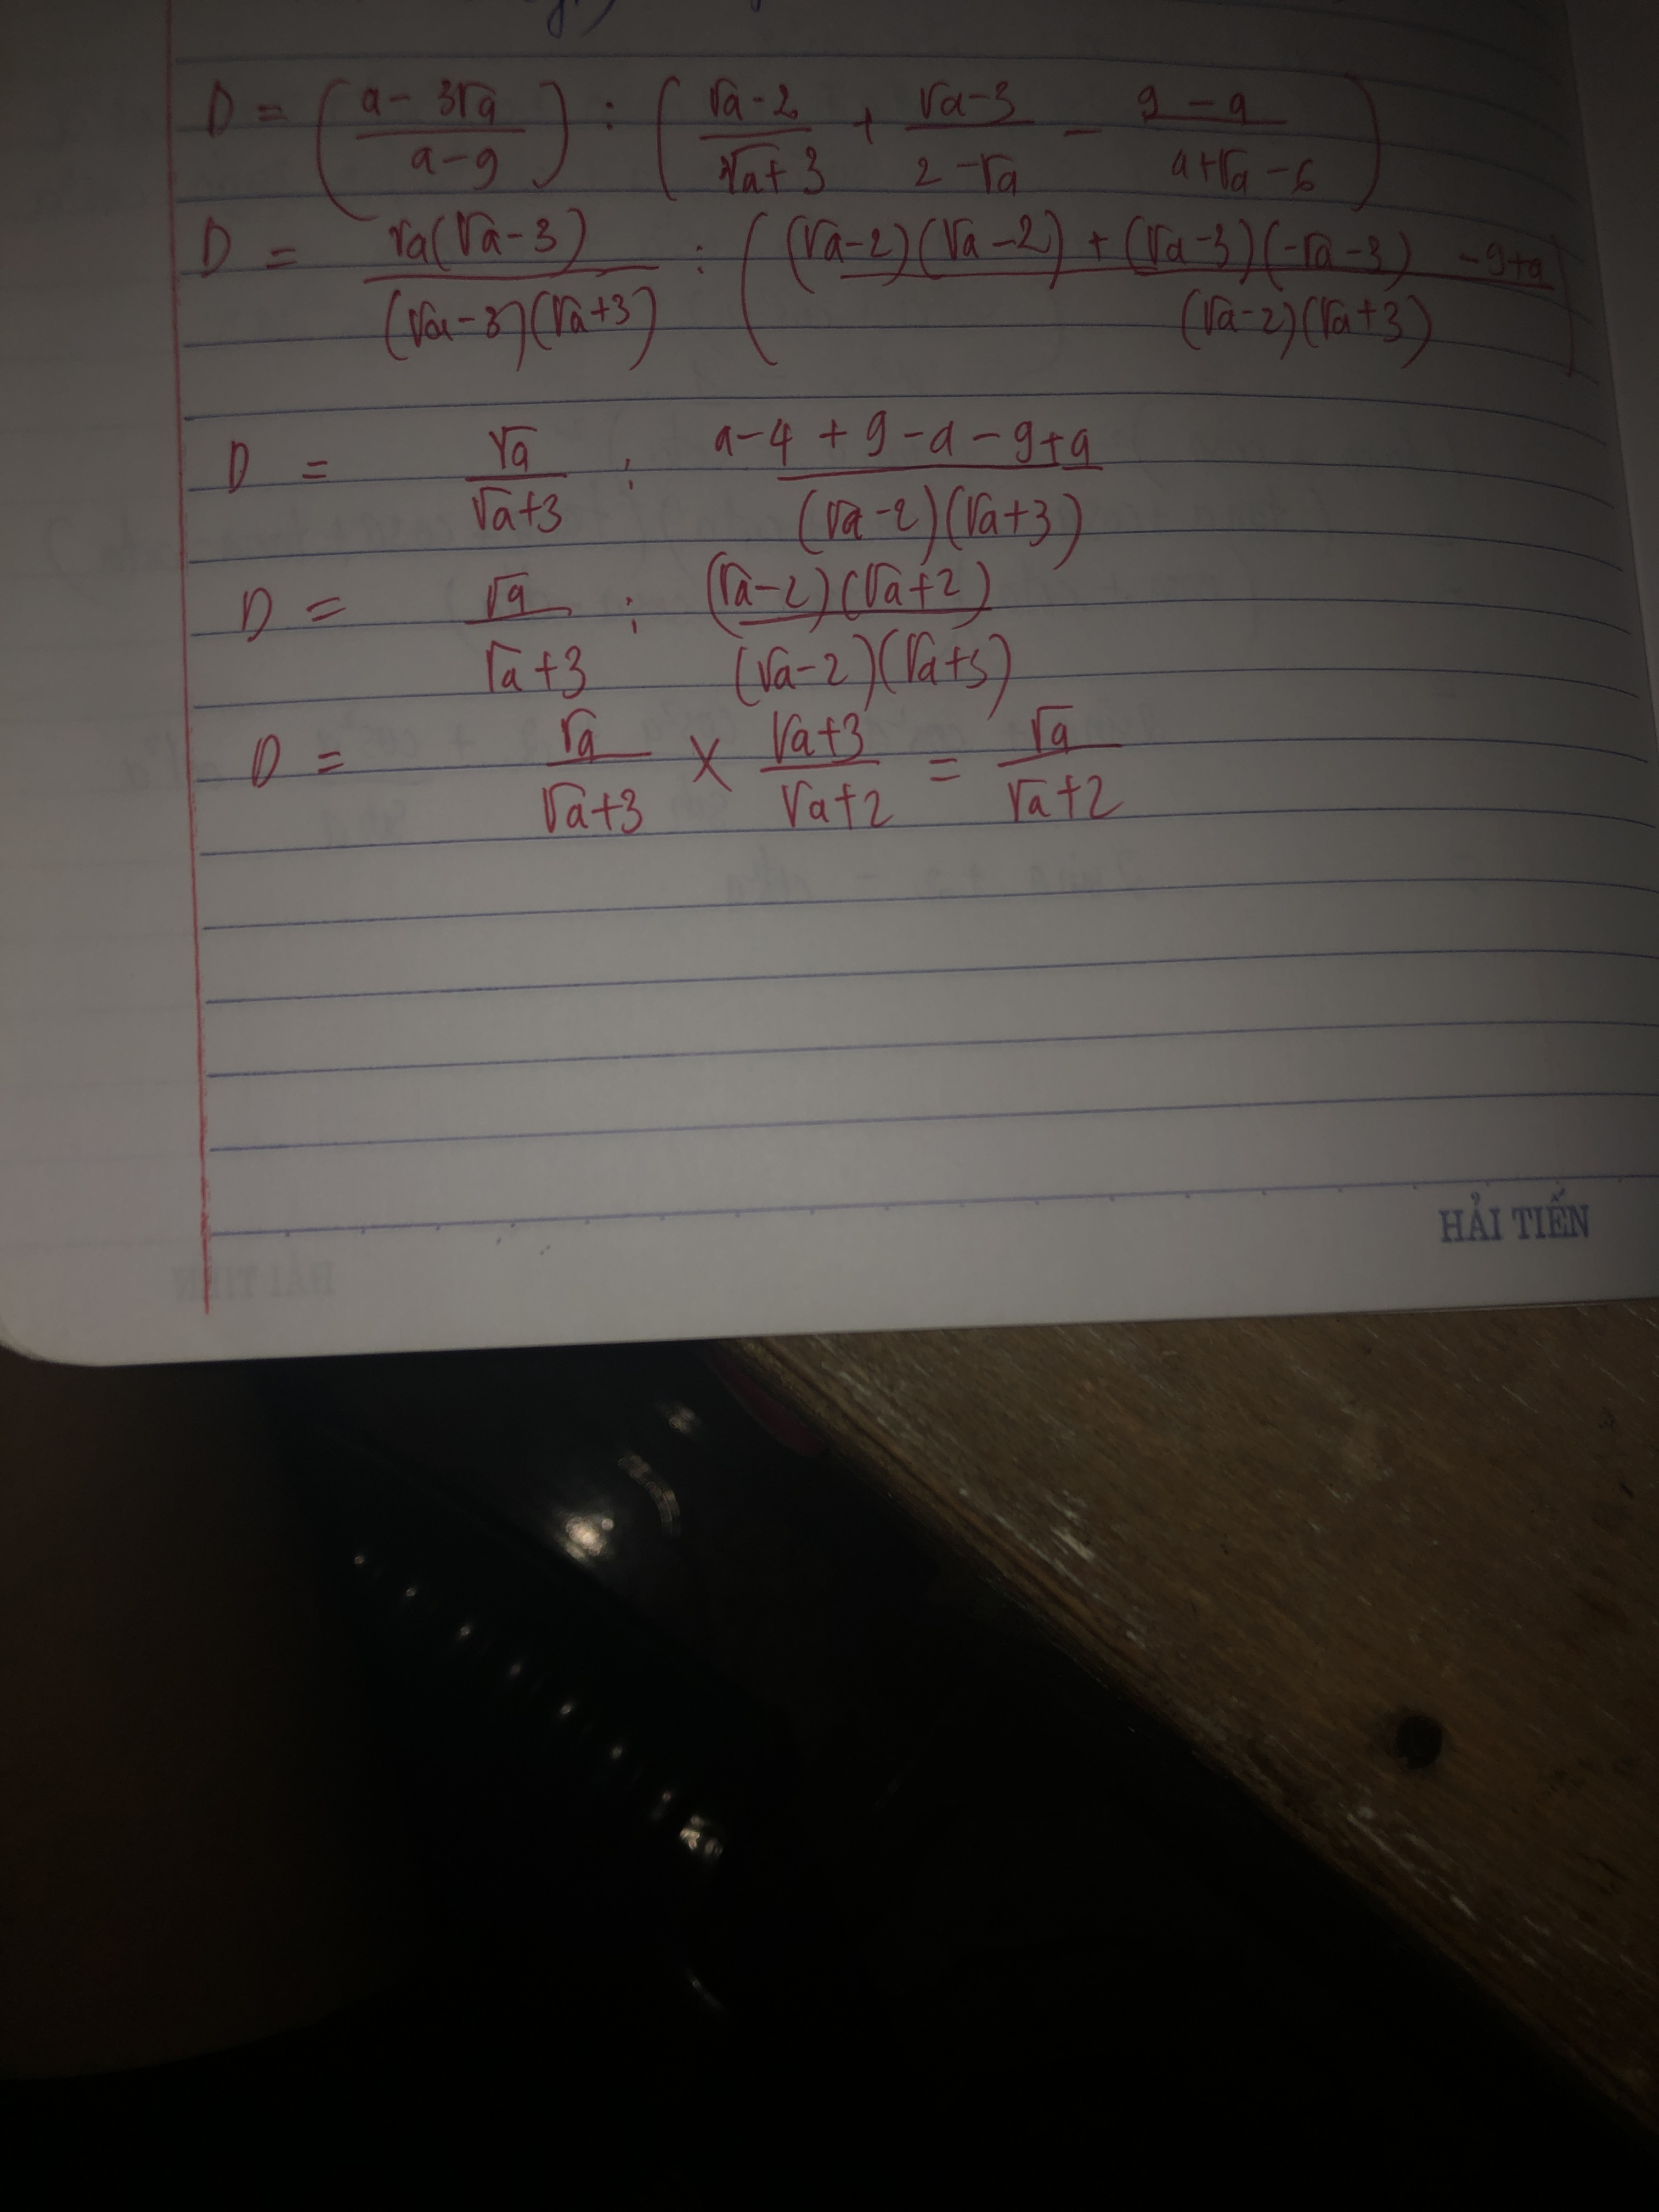 D = (a - 3√a / a - 9) : (√a - 2 / √a + 3 + √a - 3 / 2 - √a - 9 - a / a + √a - 6)
D = √a(√a - 3) / (√a - 3)(√a + 3) : ((√a - 2)(√a - 2) + (√a - 3)(-√a - 3) - 9 + a / (√a - 2)(√a + 3))
D = √a / √a + 3 : a - 4 + 9 - a - 9 + a / (√a - 2)(√a + 3)
D = √a / √a + 3 : (√a - 2)(√a + 2) / (√a - 2)(√a + 3)
D = √a / √a + 3 × √a + 3 / √a + 2 = √a / √a + 2
HẢI TIẾN